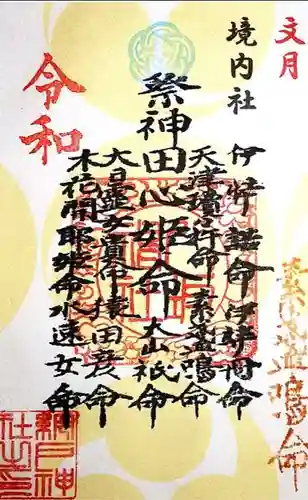 文月
境内社
伊弉諾命 伊弉冊命
天津彦 命 素盞嗚命
祭神 田心姫命 大山祇命
大日孁女貴命 猿田彦命
木花開耶姫命 水速女命
令和
素盞嗚命
網戸神社之印